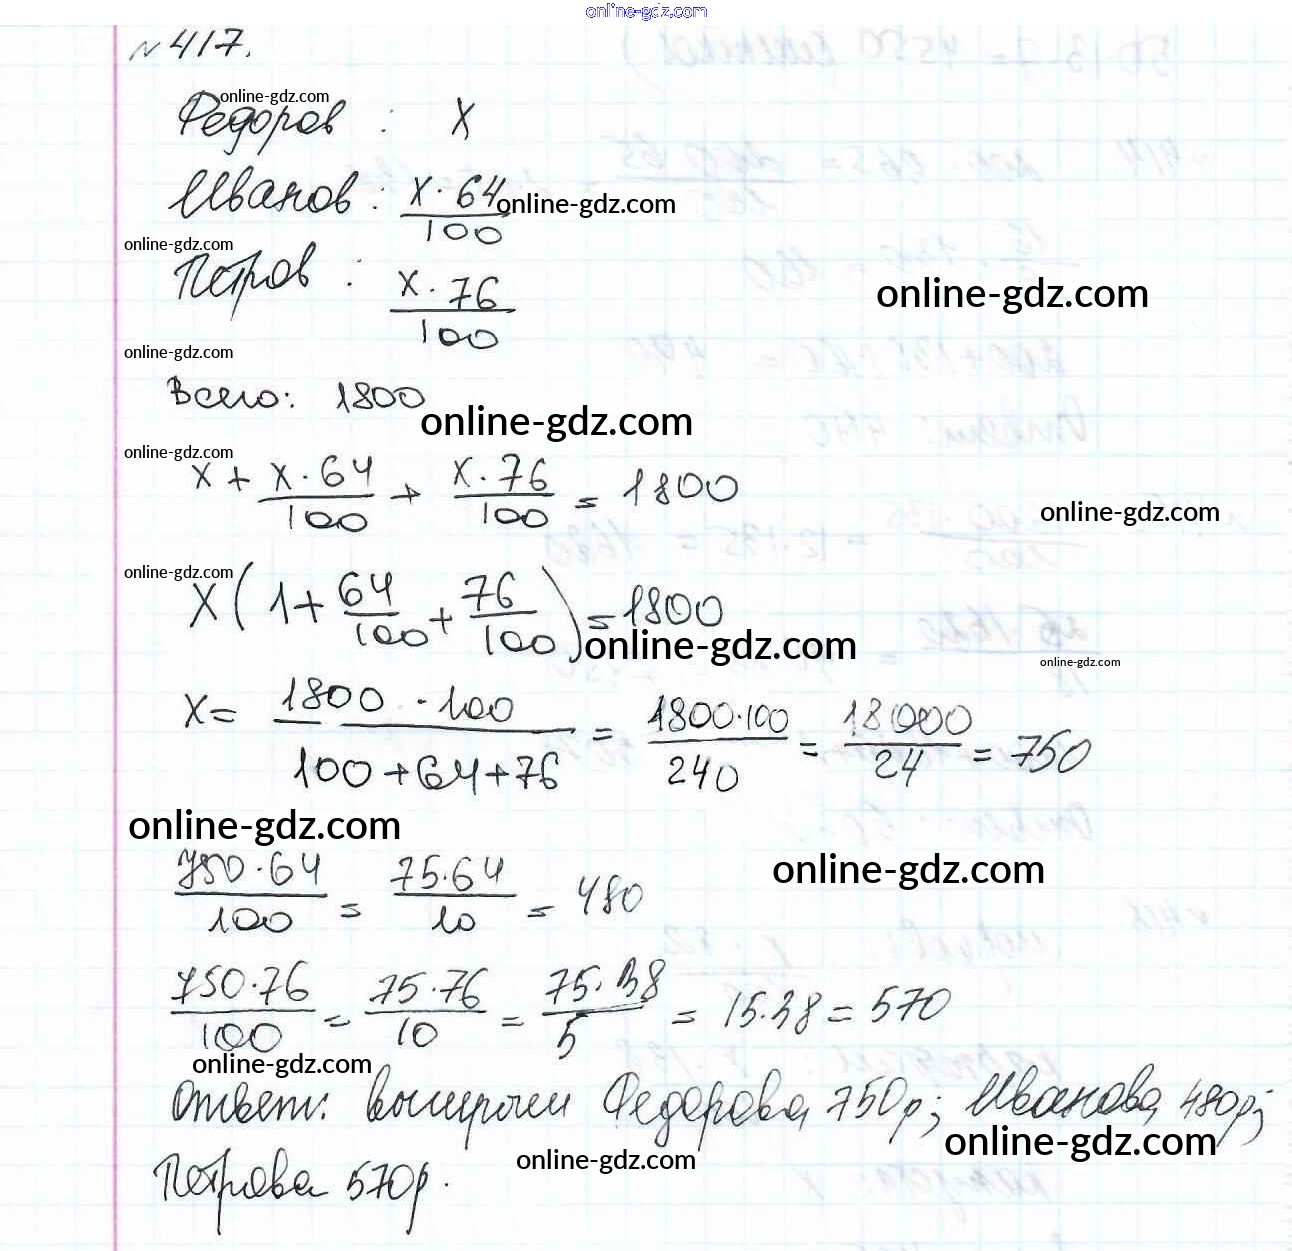 online-gdz.com
№ 417.
online-gdz.com
Федоров : x
Иванов : x · 64 / 100 online-gdz.com
online-gdz.com
Петров : x · 76 / 100 online-gdz.com
online-gdz.com
Всего: 1800 online-gdz.com
online-gdz.com
x + x · 64 / 100 + x · 76 / 100 = 1800
online-gdz.com
online-gdz.com
x ( 1 + 64 / 100 + 76 / 100 ) = 1800
online-gdz.com
online-gdz.com
x = 1800 · 100 / 100 + 64 + 76 = 1800 · 100 / 240 = 18000 / 24 = 750
online-gdz.com
online-gdz.com
750 · 64 / 100 = 75 · 64 / 10 = 480
750 · 76 / 100 = 75 · 76 / 10 = 75 · 38 / 5 = 15 · 38 = 570
online-gdz.com
Ответ: выигрыш Федорова 750р; Иванова 480р;
online-gdz.com
online-gdz.com
Петрова 570р.